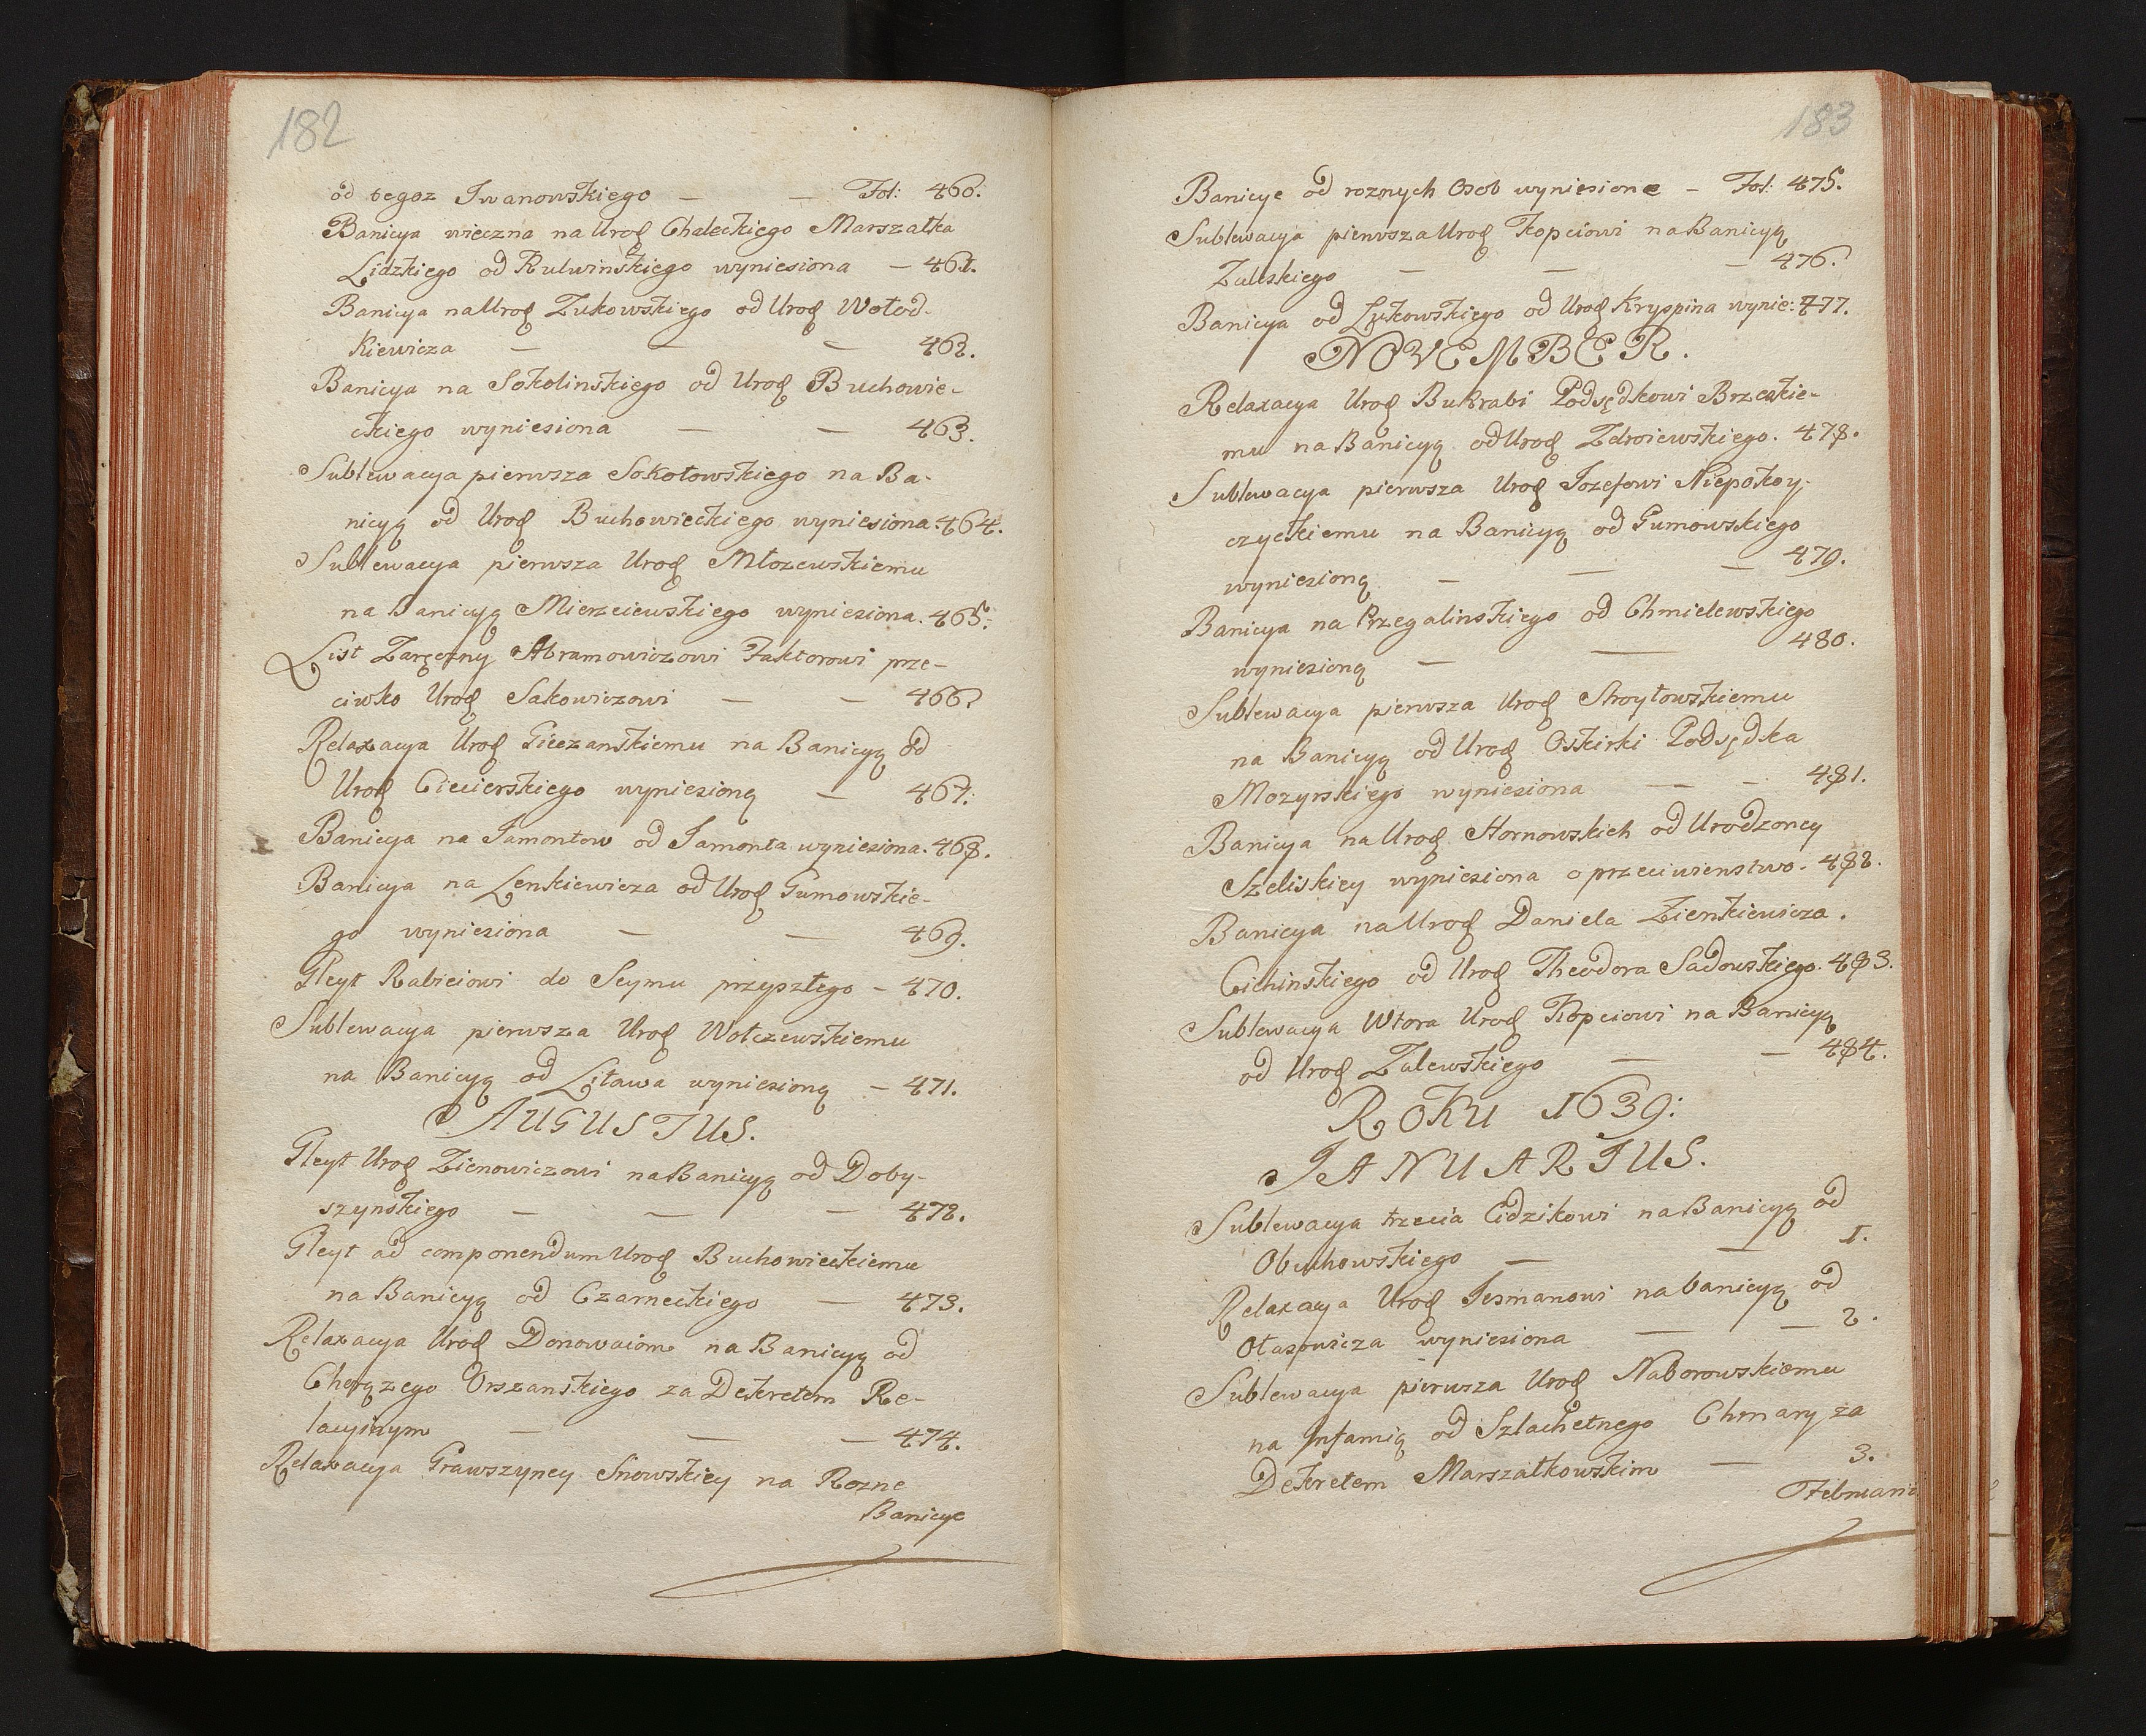 182
od tegoz Iwanowskiego — — Fol: 460.
Banicya wieczna na Urod Chaleckiego Marszałka
Lidzkiego od Rulwinskiego wyniesiona — 461.
Banicya na Urod Zukowskiego od Urod Wołod-
kiewicza — — — 462.
Banicya na Sokolinskiego od Urod Buchowie-
ckiego wyniesiona — — 463.
Sublewacya pierwsza Sokołowskiego na Ba-
nicyą od Urod Buchowieckiego wyniesiona. 464.
Sublewacya pierwsza Urod Młozewskiemu
na Banicyą Mierzeiewskiego wyniesiona. 465.
List Zaręczny Abramowiczowi Faktorowi prze-
ciwko Urod Sakowiczowi — — 466.
Relaxacya Urod Gieczanskiemu na Banicyą od
Urod Ciecierskiego wyniesioną — 467.
Banicya na Jamontow od Jamonta wyniesiona. 468.
Banicya na Lenkiewicza od Urod Gumowskie-
go wyniesiona — — 469.
Gleyt Rabieiowi do Seymu przyszłego - 470.
Sublewacya pierwsza Urod Wołczewskiemu
na Banicyą od Litawa wyniesioną — 471.
AUGUSTUS.
Gleyt Urod Zienowiczowi na Banicyą od Doby-
szynskiego — — — 472.
Gleyt ad componendum Urod Buchowieckiemu
na Banicyą od Czarneckiego — 473.
Relaxacya Urod Donowaiom na Banicyą od
Chorązego Orszanskiego za Dekretem Re-
lacyinym — — — 474.
Relaxacya Grawszyney Snowskiey na Rozne
Banicye
183
Banicye od roznych Osob wyniesione - Fol: 475.
Sublewacya pierwsza Urod Kopciowi na Banicyą
Zaleskiego — — — 476.
Banicya od Lukowskiego od Urod Kryspina wynie: 477.
NOVEMBER.
Relaxacya Urod Bukrabi Podsędkowi Brzeskie-
mu na Banicyą od Urod Zdroiewskiego. 478.
Sublewacya pierwsza Urod Jozefowi Niepokoy-
czyckiemu na Banicyą od Gumowskiego
wyniesioną — — — 479.
Banicya na Przegalinskiego od Chmielewskiego
wyniesioną — — 480.
Sublewacya pierwsza Urod Stroytowskiemu
na Banicyą od Urod Oskirki Podsędka
Mozyrskiego wyniesiona — - 481.
Banicya na Urod Hornowskich od Urodzoney
Szeliskiey wyniesiona o przeciwienstwo. 482.
Banicya na Urod Daniela Zienkiewicza.
Cichinskiego od Urod Theodora Sadowskiego. 483.
Sublewacya Wtora Urod Kopciowi na Banicyą
od Urod Zalewskiego — — 484.
ROKU 1639:
JANUARIUS.
Sublewacya trzecia Cidzikowi na Banicyą od
Obuchowskiego — — 1.
Relaxacya Urod Jesmanowi na banicyą od
Otaspwicza wyniesiona — — 2.
Sublewacya pierwsza Urod Naborowskiemu
na Infamią od Szlachetnego Chmary za
Dekretem Marszałkowskim — 3.
Februari